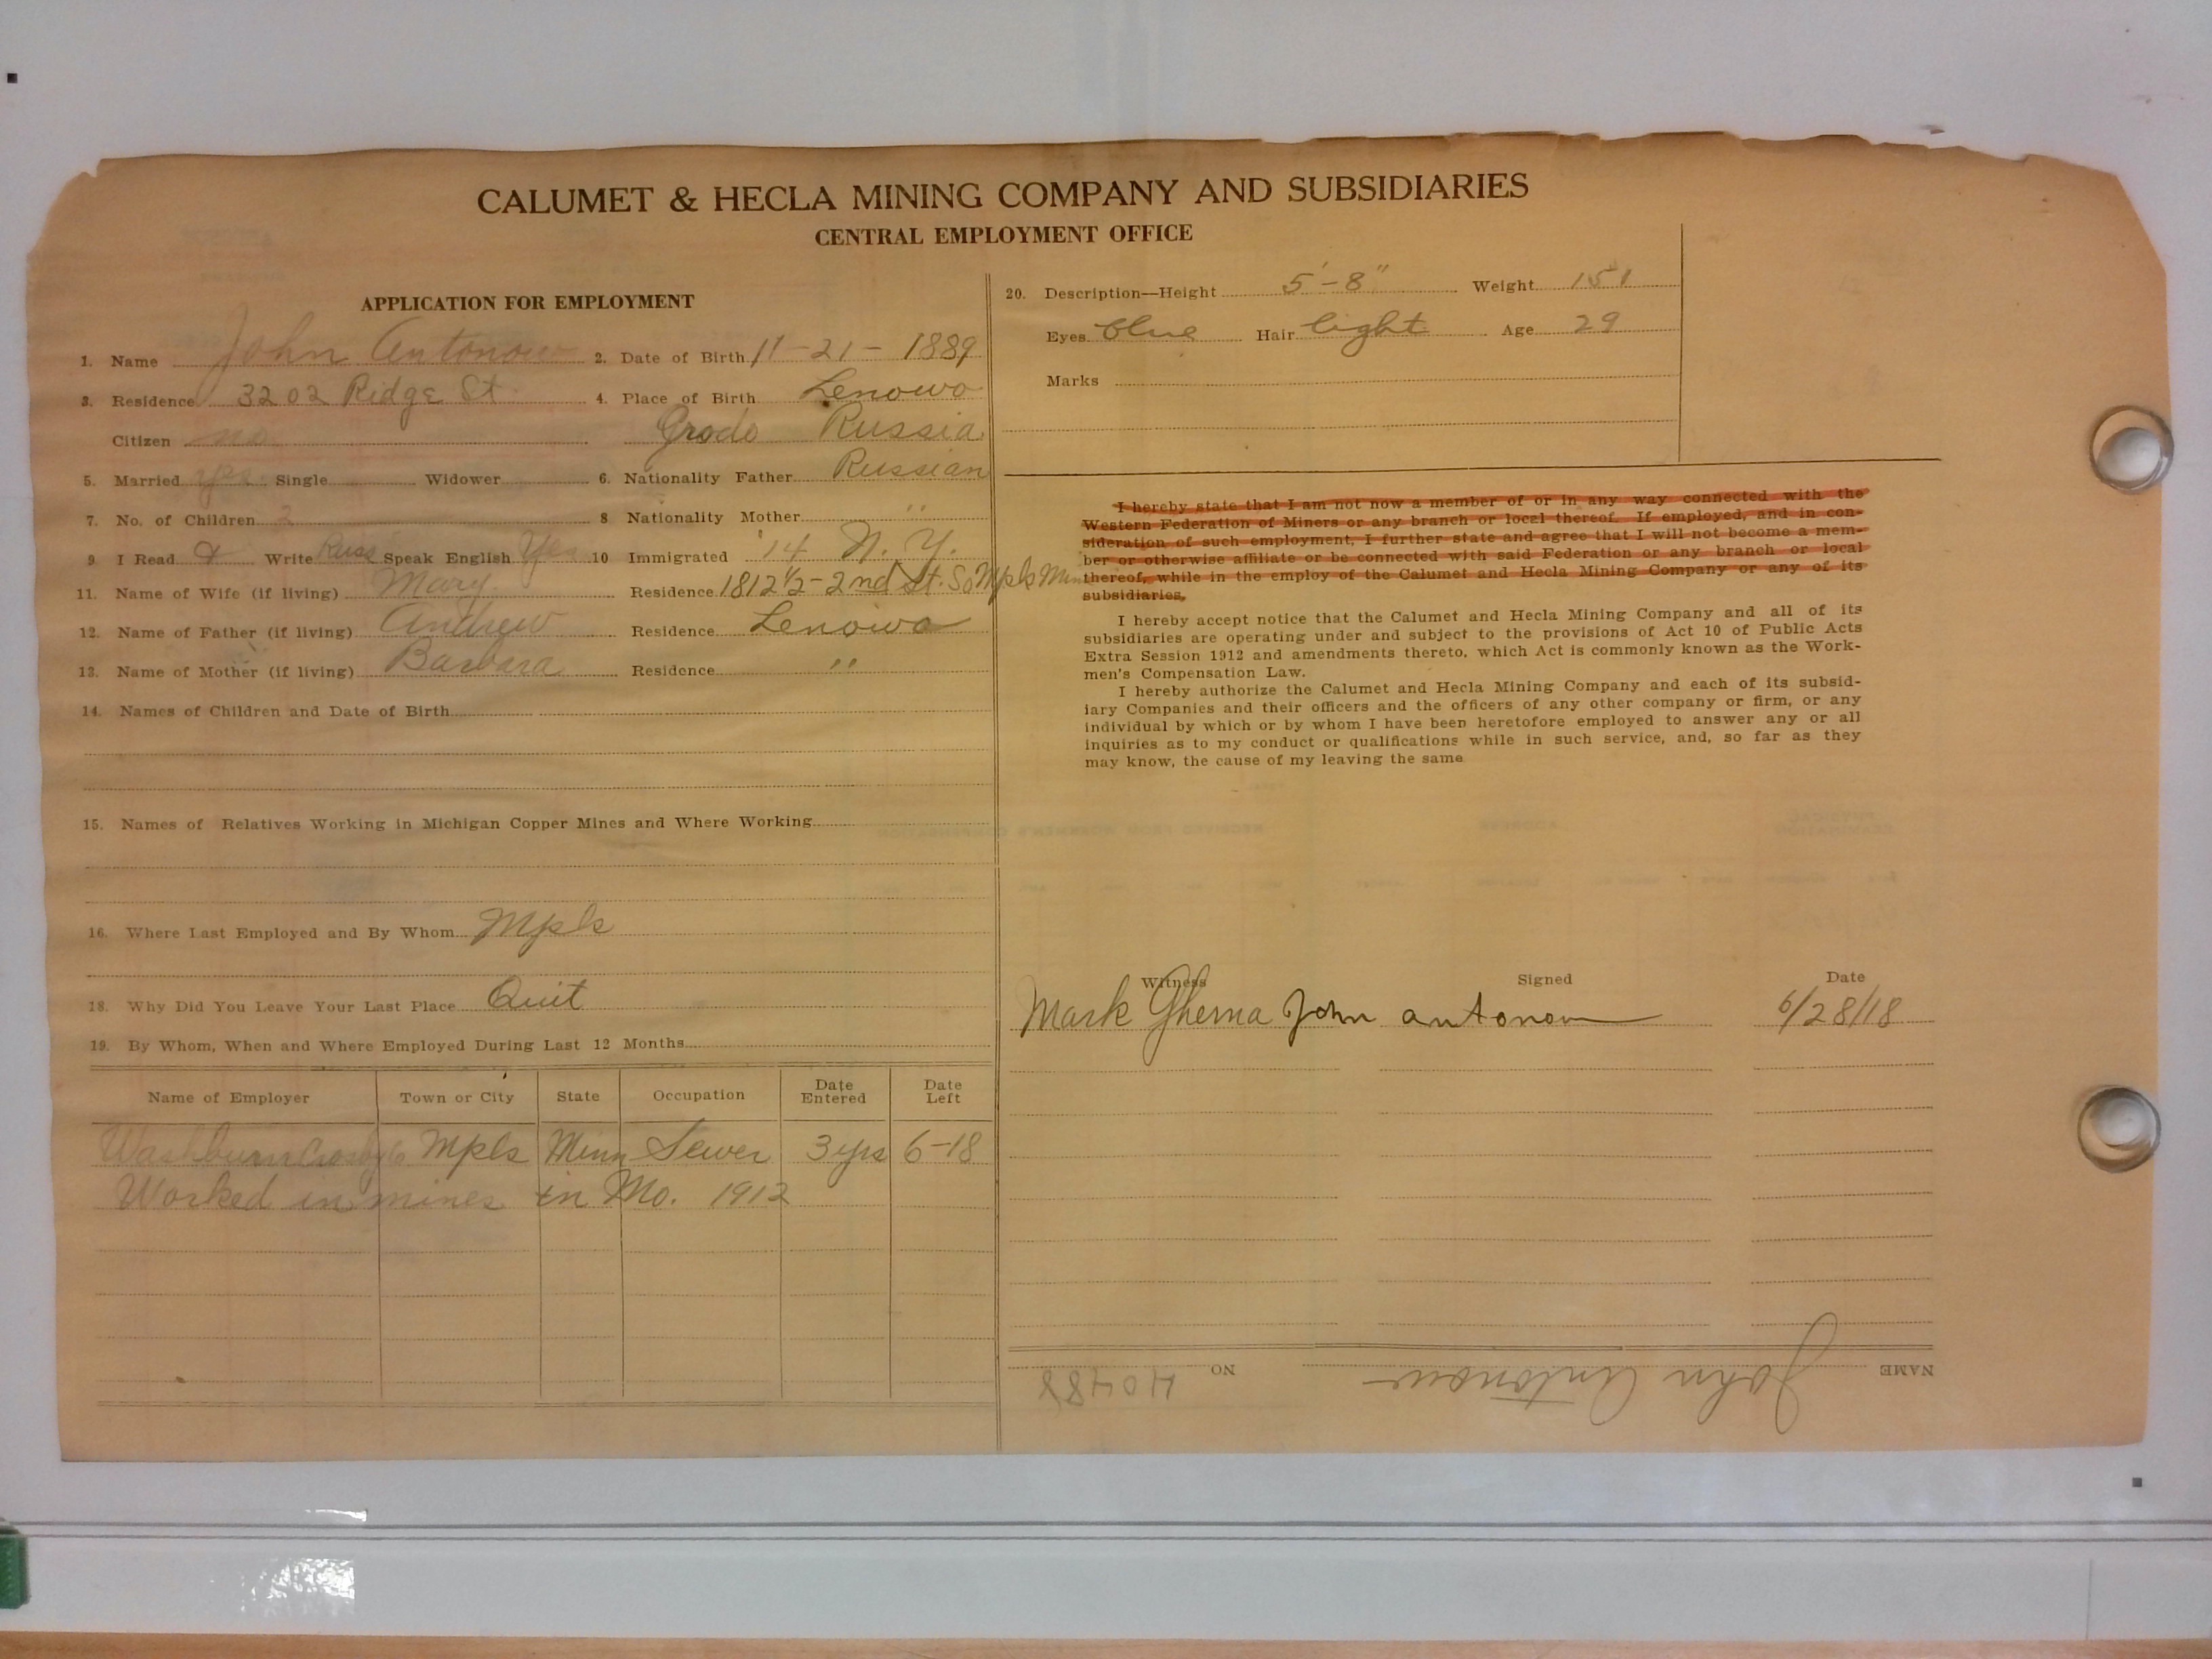 CALUMET & HECLA MINING COMPANY AND SUBSIDIARIES
CENTRAL EMPLOYMENT OFFICE
APPLICATION FOR EMPLOYMENT
1. Name John Antonow 2. Date of Birth 11-21-1889
3. Residence 3202 Ridge St 4. Place of Birth Lenowo
Citizen no Grodo Russia
5. Married yes Single Widower 6. Nationality Father Russian
7. No. of Children 2 8 Nationality Mother "
9 I Read & Write Russ Speak English Yes 10 Immigrated '14 N. Y.
11. Name of Wife (if living) Mary Residence 1812 1/2-2nd St. So Mpls Minn
12. Name of Father (if living) Andrew Residence Lenowo
13. Name of Mother (if living) Barbara Residence "
14. Names of Children and Date of Birth
15. Names of Relatives Working in Michigan Copper Mines and Where Working
16. Where Last Employed and By Whom Mpls
18. Why Did You Leave Your Last Place Quit
19. By Whom, When and Where Employed During Last 12 Months
Name of Employer Town or City State Occupation Date Entered Date Left
Washburn Crosby Co Mpls Minn Sewer 3 yrs 6-18
Worked in mines in Mo. 1912
20. Description—Height 5'-8" Weight 151
Eyes blue Hair light Age 29
Marks
I hereby state that I am not now a member of or in any way connected with the
Western Federation of Miners or any branch or local thereof. If employed, and in con-
sideration of such employment, I further state and agree that I will not become a mem-
ber or otherwise affiliate or be connected with said Federation or any branch or local
thereof, while in the employ of the Calumet and Hecla Mining Company or any of its
subsidiaries.
I hereby accept notice that the Calumet and Hecla Mining Company and all of its
subsidiaries are operating under and subject to the provisions of Act 10 of Public Acts
Extra Session 1912 and amendments thereto, which Act is commonly known as the Work-
men's Compensation Law.
I hereby authorize the Calumet and Hecla Mining Company and each of its subsid-
iary Companies and their officers and the officers of any other company or firm, or any
individual by which or by whom I have been heretofore employed to answer any or all
inquiries as to my conduct or qualifications while in such service, and, so far as they
may know, the cause of my leaving the same
Witness Signed Date
Mark Gherna John antonow 6/28/18
NAME John Antonow NO 40488